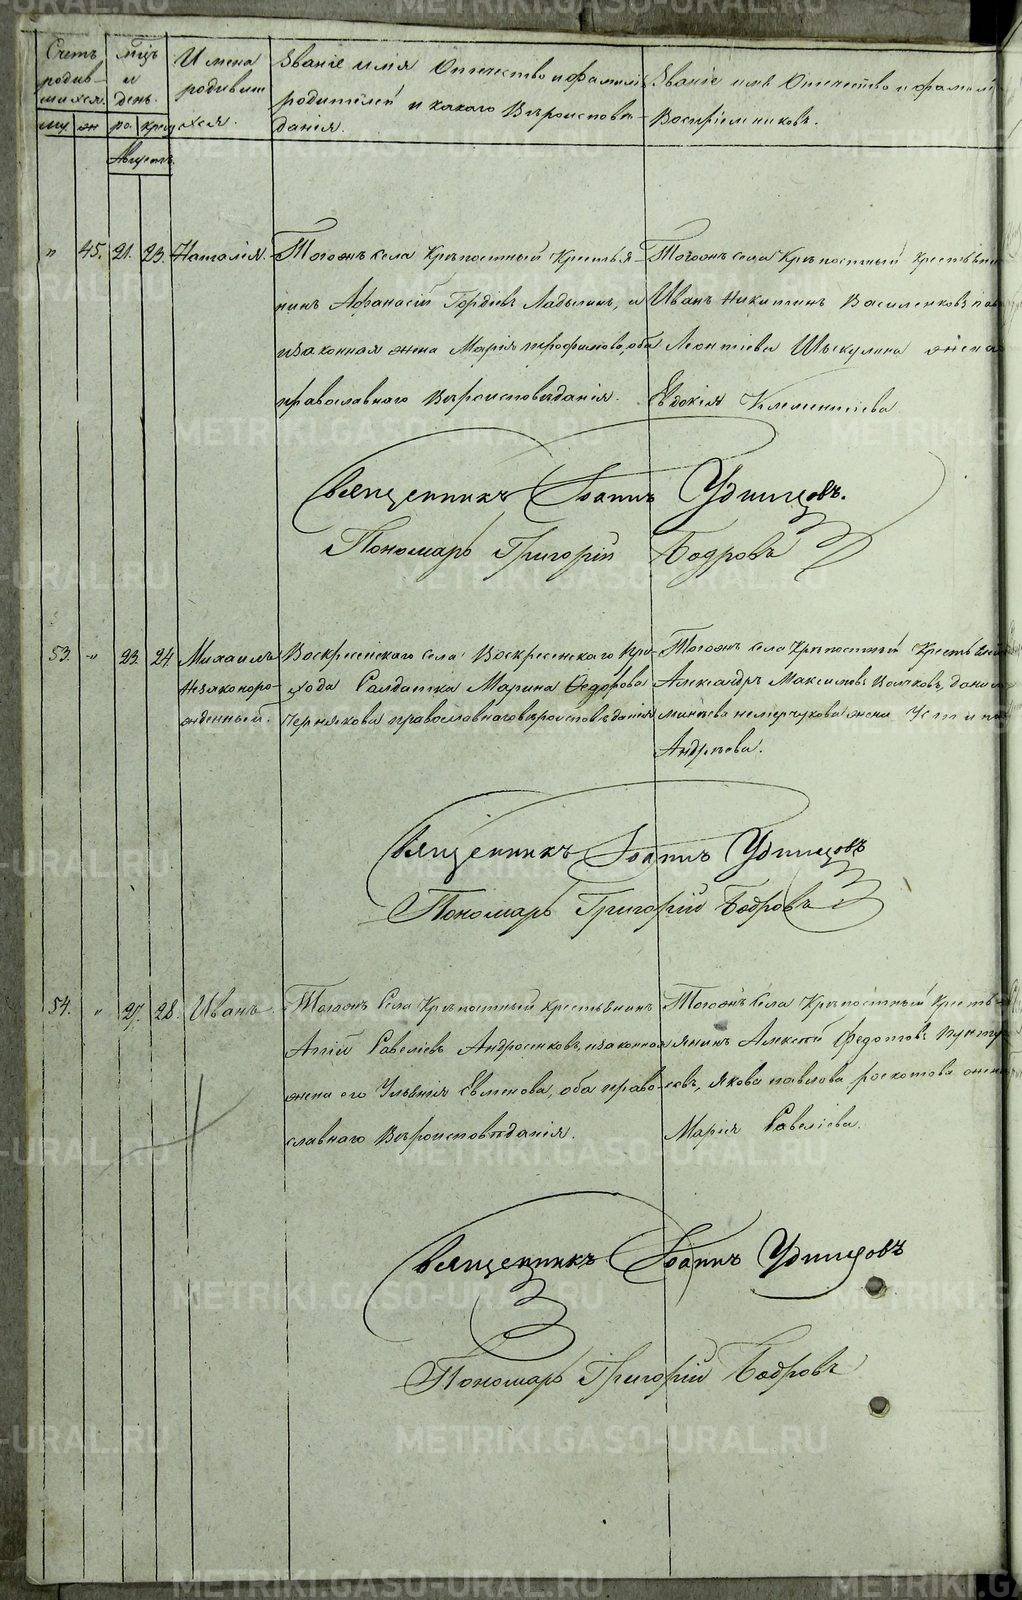 METRIKI.GASO-URAL.RU
Счетъ родив-шихся.
му. жен
мѣцъ и день.
ро. крещ
Имена родивших
ихся.
Званіе имя Отчество и фамилія
родителей и какого Вѣроиспове-
данія.
Званіе имя Отчество и фамилія
Воспріемниковъ.
Августъ.
" 45. 21. 23. Наталія.
Тогожъ села Крѣпостный Крестья-
нинъ Афанасій Гордѣевъ Ладыгинъ, и
изаконная жена Марія Трофимова, оба
православнаго Вѣроисповѣданія.
Тогожъ села Крѣпостный крестьянин
Иванъ Никитинъ Василенковъ
Леонтіева Шъкулина жена
Евдокія Климентіева
Священникъ Іоаннъ Удинцовъ.
Пономарь Григорій Бодровъ
53. " 23. 24. Михаилъ
Незаконоро-
жденный.
Воскресенскаго села Воскресенскаго При-
хода Салдатка Марина Федорова
Чернякова православнаго вѣроисповѣданія
Тогожъ села Крѣпостный Крестьянин
Александръ Максимовъ
жена Устинія
Андрѣева.
Священникъ Іоаннъ Удинцовъ
Пономарь Григорій Бодровъ
54. " 27. 28. Иванъ.
Тогожъ Села Крѣпостный крестьянинъ
Савеліевъ Андросенковъ, изаконная
жена его Ульянія Евменова, оба право-
славнаго Вѣроисповѣданія.
Тогожъ Села Крѣпостный Кресть-
янинъ Алексѣй Федотовъ
Якова павлова жена
Марія Савеліева.
Священникъ Іоаннъ Удинцовъ
Пономарь Григорій Бодровъ